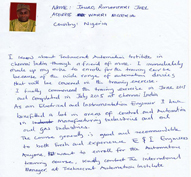 NAME: IMUAD, AUGHENWEKI JOEL
ADDRESS: WARRI NIGERIA
Country: Nigeria
I heard about Technocrat Automation Institute in
Chennai India through a friend of mine. I immediately
made up my mind to enroll for the training course
because of the wide range of automation devices
that will be covered in the training exercise.
I finally commenced the training exercise in June 2015
and completed in July 2015 at Chennai India
As an Electrical and Instrumentation Engineer I have
benefited a lot in areas of control and automation
in manufacturing industries and oil
and gas industries.
The course generally is good and recommendable
to both Tech and experience E & I Engineers
Anyone want to enroll for the Automation
training course, kindly contact the International
Manager at Technocrat Automation Institute